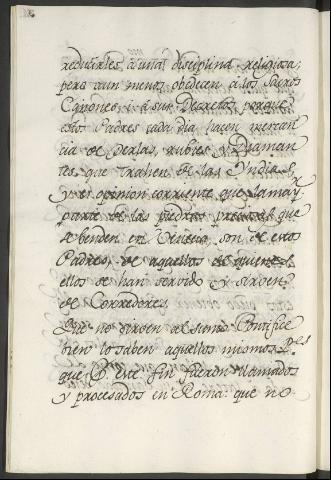 reducirles à una disciplina religiosa;
pero aun menos obedecen à los Sacros
Canones, i à sus Decretos, porque
estos Padres cada dia hacen mercan-
cia de Perlas, rubies, y Diaman-
tes que trahen de las Yndias,
y es opinion corriente que la mayr.
parte de las piedras preciosas que
se benden en Venecia son de estos
Padres, de aquellos de quienes
ellos se han servido, y sirven
de Corredores.
Que no sirven al Sumo Pontifice
bien lo saben aquellos mismos Pes.
que pr. este fin fueron llamados
y procesados en Roma: que no